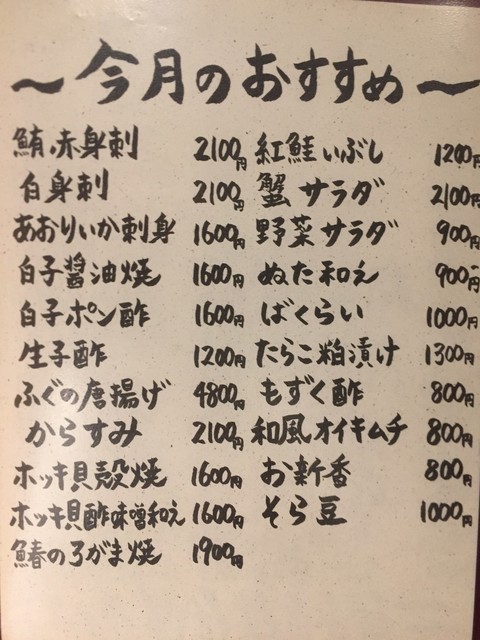 〜今月のおすすめ〜
鮪赤身刺 2100円
白身刺 2100円
あおりいか刺身 1600円
白子醤油焼 1600円
白子ポン酢 1600円
生子酢 1200円
ふぐの唐揚げ 4800円
からすみ 2100円
ホッキ貝殻焼 1600円
ホッキ貝酢味噌和え 1600円
鰆のろがま焼 1900円
紅鮭いぶし 1200円
蟹サラダ 2100円
野菜サラダ 900円
ぬた和え 900円
ばくらい 1000円
たらこ粕漬け 1300円
もずく酢 800円
和風オイキムチ 800円
お新香 800円
そら豆 1000円